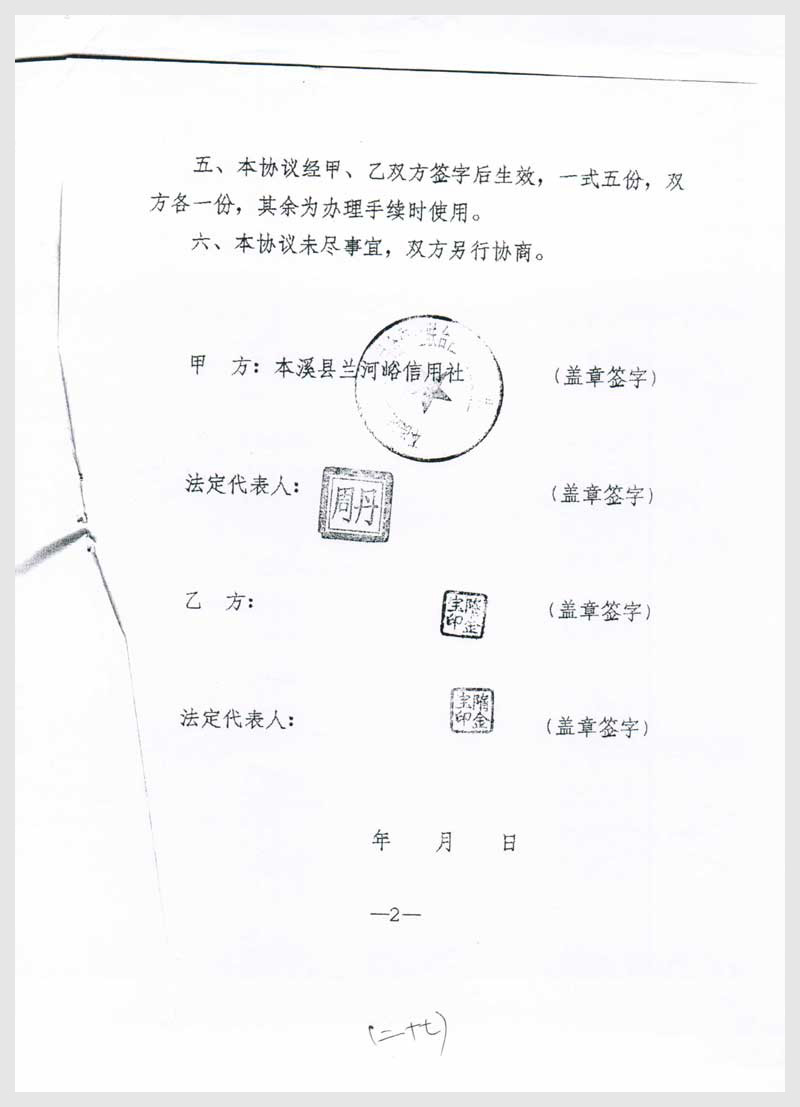 五、本协议经甲、乙双方签字后生效，一式五份，双
方各一份，其余为办理手续时使用。
六、本协议未尽事宜，双方另行协商。
甲　方：本溪县兰河峪信用社　（盖章签字）
法定代表人：　周丹　（盖章签字）
乙　方：　隋金宝印　（盖章签字）
法定代表人：　隋金宝印　（盖章签字）
年　月　日
—2—
（二十七）